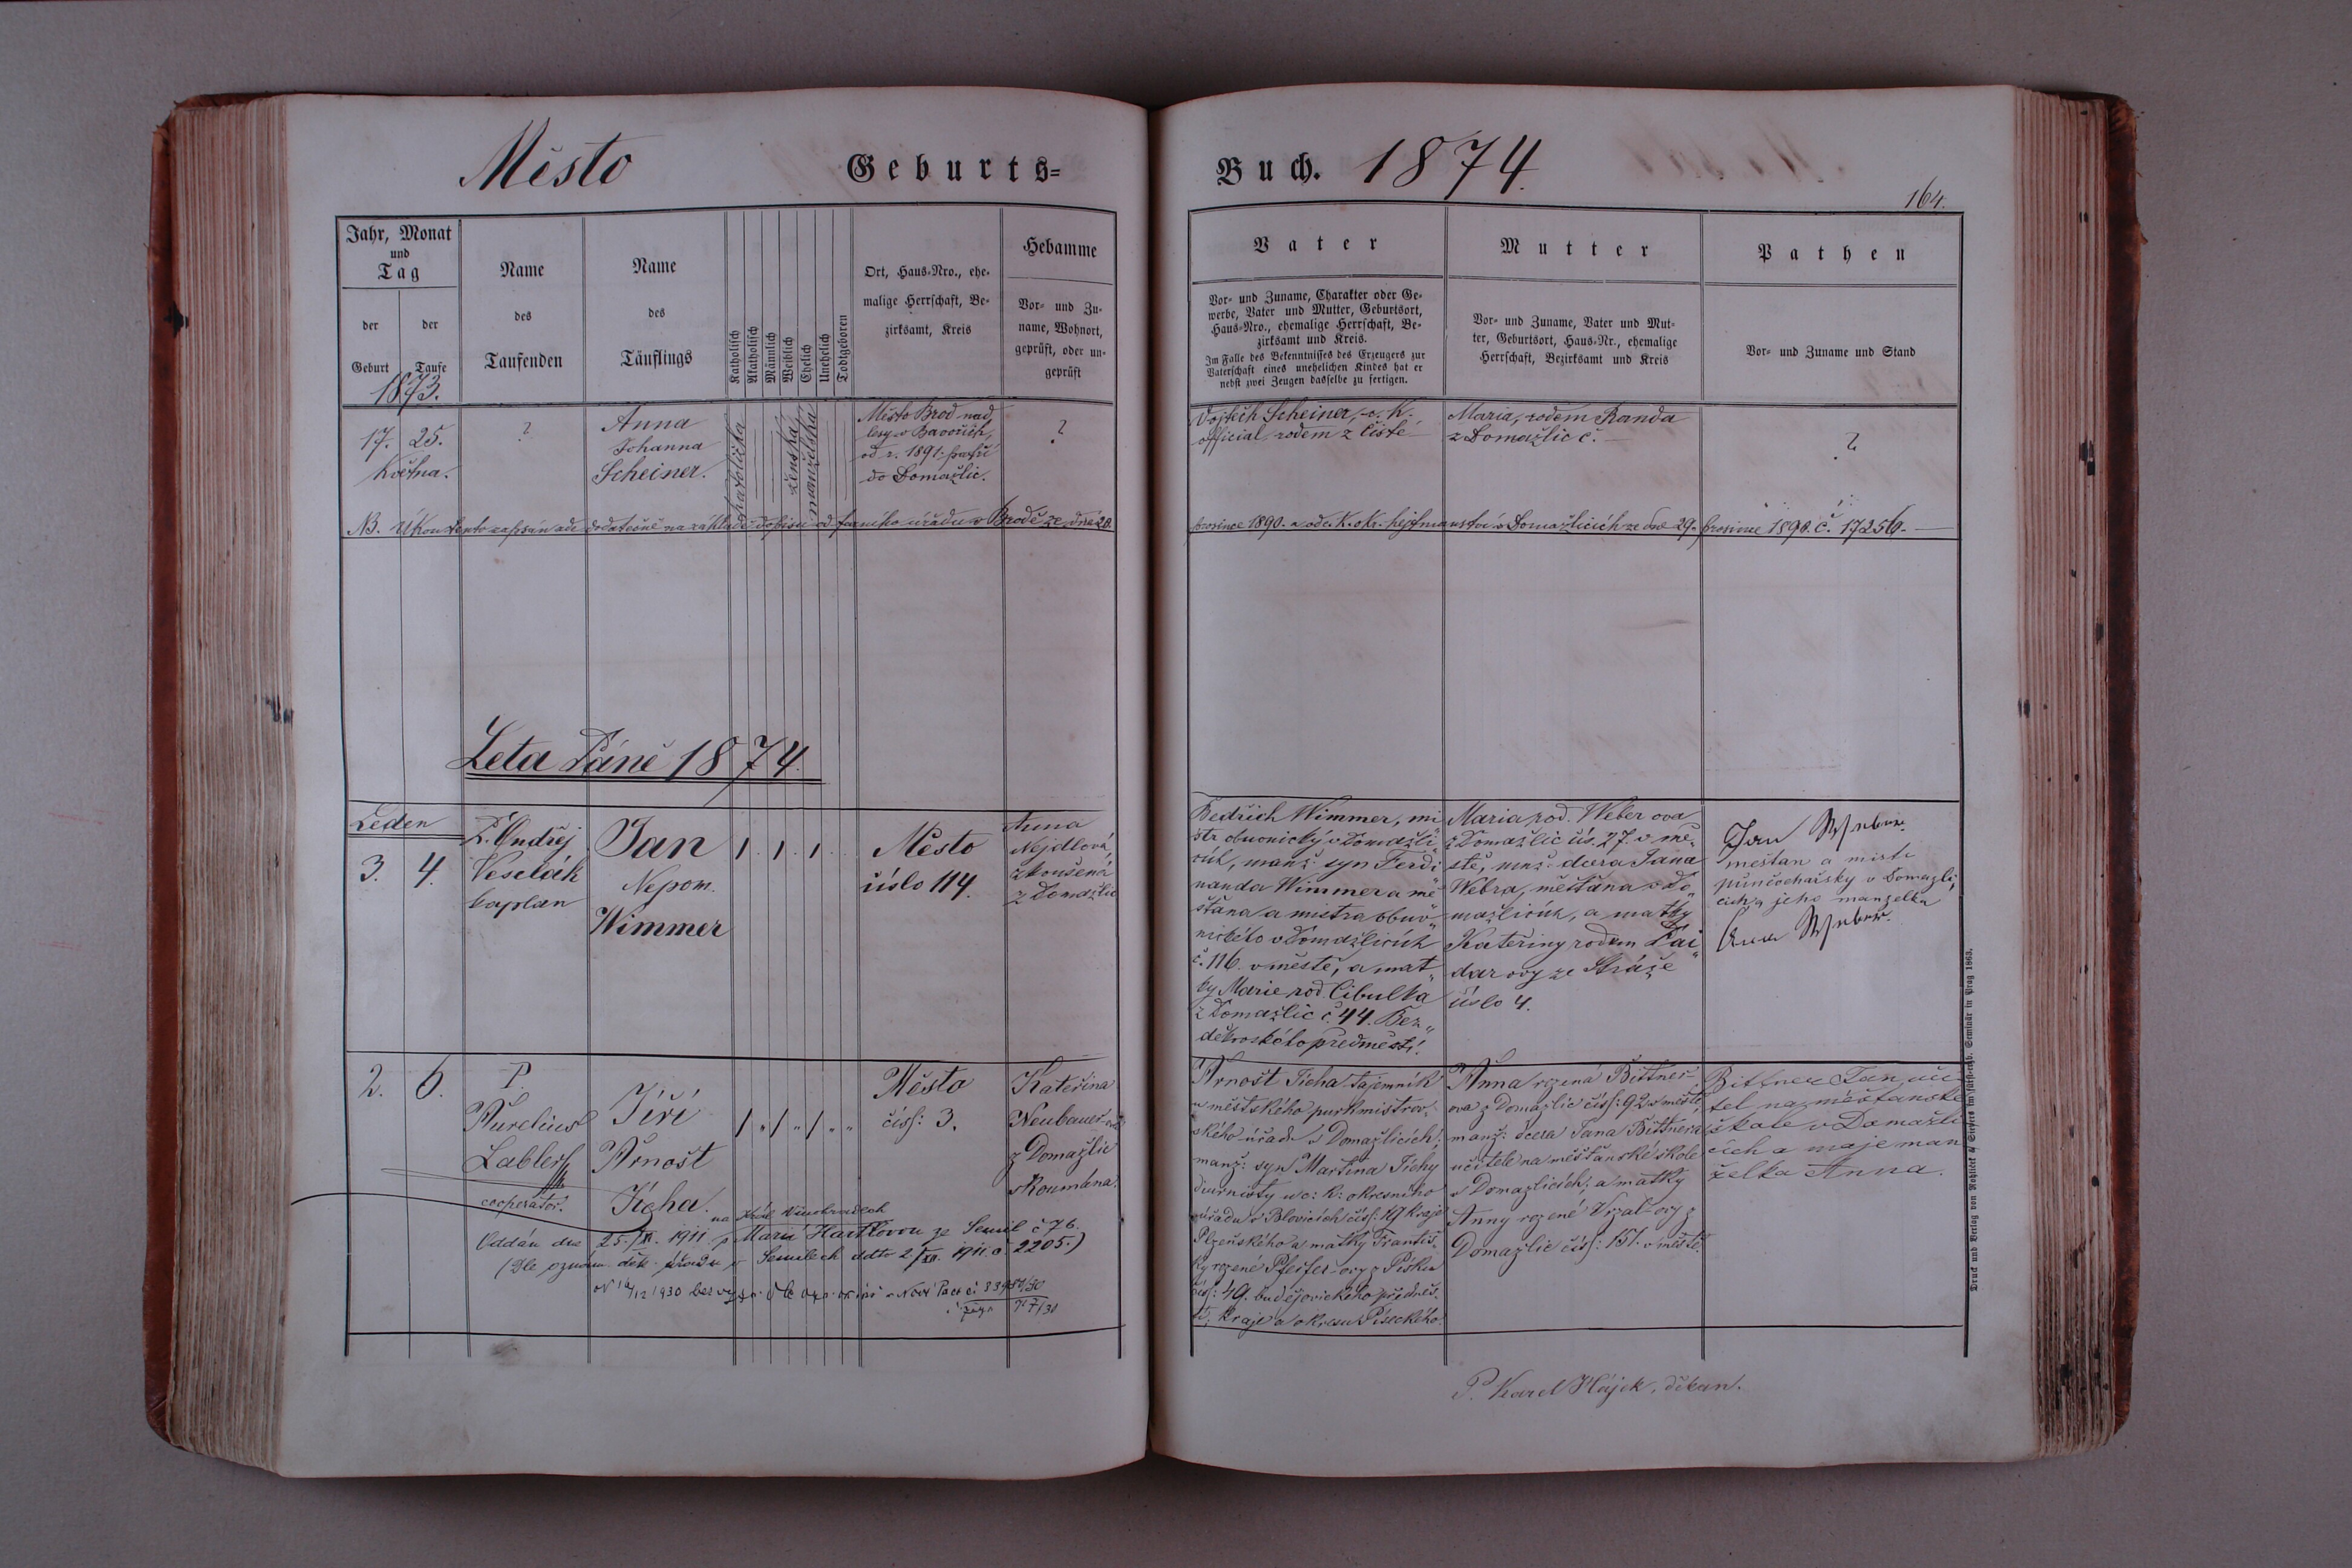 Město
Geburts=
Buch. 1874.
164.
Jahr, Monat
und
Tag
der
Geburt
der
Taufe
1873.
Name
des
Taufenden
Name
des
Täuflings
Katholisch
Akatholisch
Männlich
Weiblich
Ehelich
Unehelich
Todtgeboren
Ort, Haus-Nro., ehe-
malige Herrschaft, Be-
zirksamt, Kreis
Hebamme
Vor- und Zu-
name, Wohnort,
geprüft, oder un-
geprüft
Vater
Vor- und Zuname, Charakter oder Ge-
werbe, Vater und Mutter, Geburtsort,
Haus-Nro., ehemalige Herrschaft, Be-
zirksamt und Kreis.
Im Falle des Bekenntnisses des Erzeugers zur
Vaterschaft eines unehelichen Kindes hat er
nebst zwei Zeugen dasselbe zu fertigen.
Mutter
Vor- und Zuname, Vater und Mut-
ter, Geburtsort, Haus-Nr., ehemalige
Herrschaft, Bezirksamt und Kreis
Pathen
Vor- und Zuname und Stand
17. 25.
Května.
?
Anna
Johanna
Scheiner.
katolička
ženská
manželská
Město Brod nad
lesy v Bavořích,
od r. 1891 patří
do Domažlic.
?
Vojtěch Scheiner, c. k.
official rodem z Čisté
Maria, rodem Randa
z Domažlic č. —
?
NB. Úkon tento zapsán zde dodatečně na základě dopisu od farního úřadu v Brodě ze dne 20.
prosince 1890. a od c. k. okr. hejtmanství v Domažlicích ze dne 29. prosince 1890. č. 17256.
Leta Páně 1874.
Leden
3. 4.
P. Ondřej
Veselák
kaplan
Jan
Nepom.
Wimmer
1 1 1
Město
číslo 114.
Anna
Nejdlová,
zkoušená
z Domažlic
Bedřich Wimmer, mi
str obuvnický v Domažli
cích, manž. syn Ferdi
nanda Wimmera mě
šťana a mistra obuv
nického v Domažlicích
č. 116. v městě, a mat
ky Marie rod. Cibulka
z Domažlic č. 44. Bez
děkovského předměstí.
Maria, rod. Weber ova
z Domažlic čís. 27. v mě
stě, manž. dcera Jana
Webra, měšťana v Do
mažlicích, a matky
Kateřiny rodem Pai
dar ovy ze Stráže
číslo 4.
Jan Weber
mešťan a mistr
punčochařsky v Domazli
cich a jeho manzelka
Anna Weber.
2. 6.
P.
Aurelius
Labler
cooperator.
Jiří
Arnošt
Tícha.
1 „ 1 „ 1 „ „
Město
čísl: 3.
Kateřina
Neubauer-ová
z Domažlic
zkoumána.
Arnošt Tícha tajemník
u městského purkmistrov-
ského úřadu v Domažlicích,
manž: syn Martina Tíchy
diurnisty u c: k: okresního
úřadu v Blovicích čísl: 19 kraje
Plzeňského a matky Františ-
ky rozené Pfeifer-ovy z Písku
čísl: 49. budějovického předměs-
tí, kraje a okresu Píseckého.
Anna rozená Bittner-
ova z Domazlic čísl: 92 v městě,
manž: dcera Jana Bittnera
učitele na měšťanské škole
v Domazlicích, a matky
Anny rozené Vrzal-ovy z
Domazlic čísl: 157. v městě.
Bittner Jan, uči-
tel na měšťanské
škole v Domažli
cích a maje man
želka Anna.
na Král. Vinohradech
Oddán dne 25./XI. 1911 s Marií Hartlovou ze Semil č 76.
(Dle oznám. děk. úřadu v Semilech ddto 2/XII. 1911. č 2205.)
P. Karel Hájek, děkan.